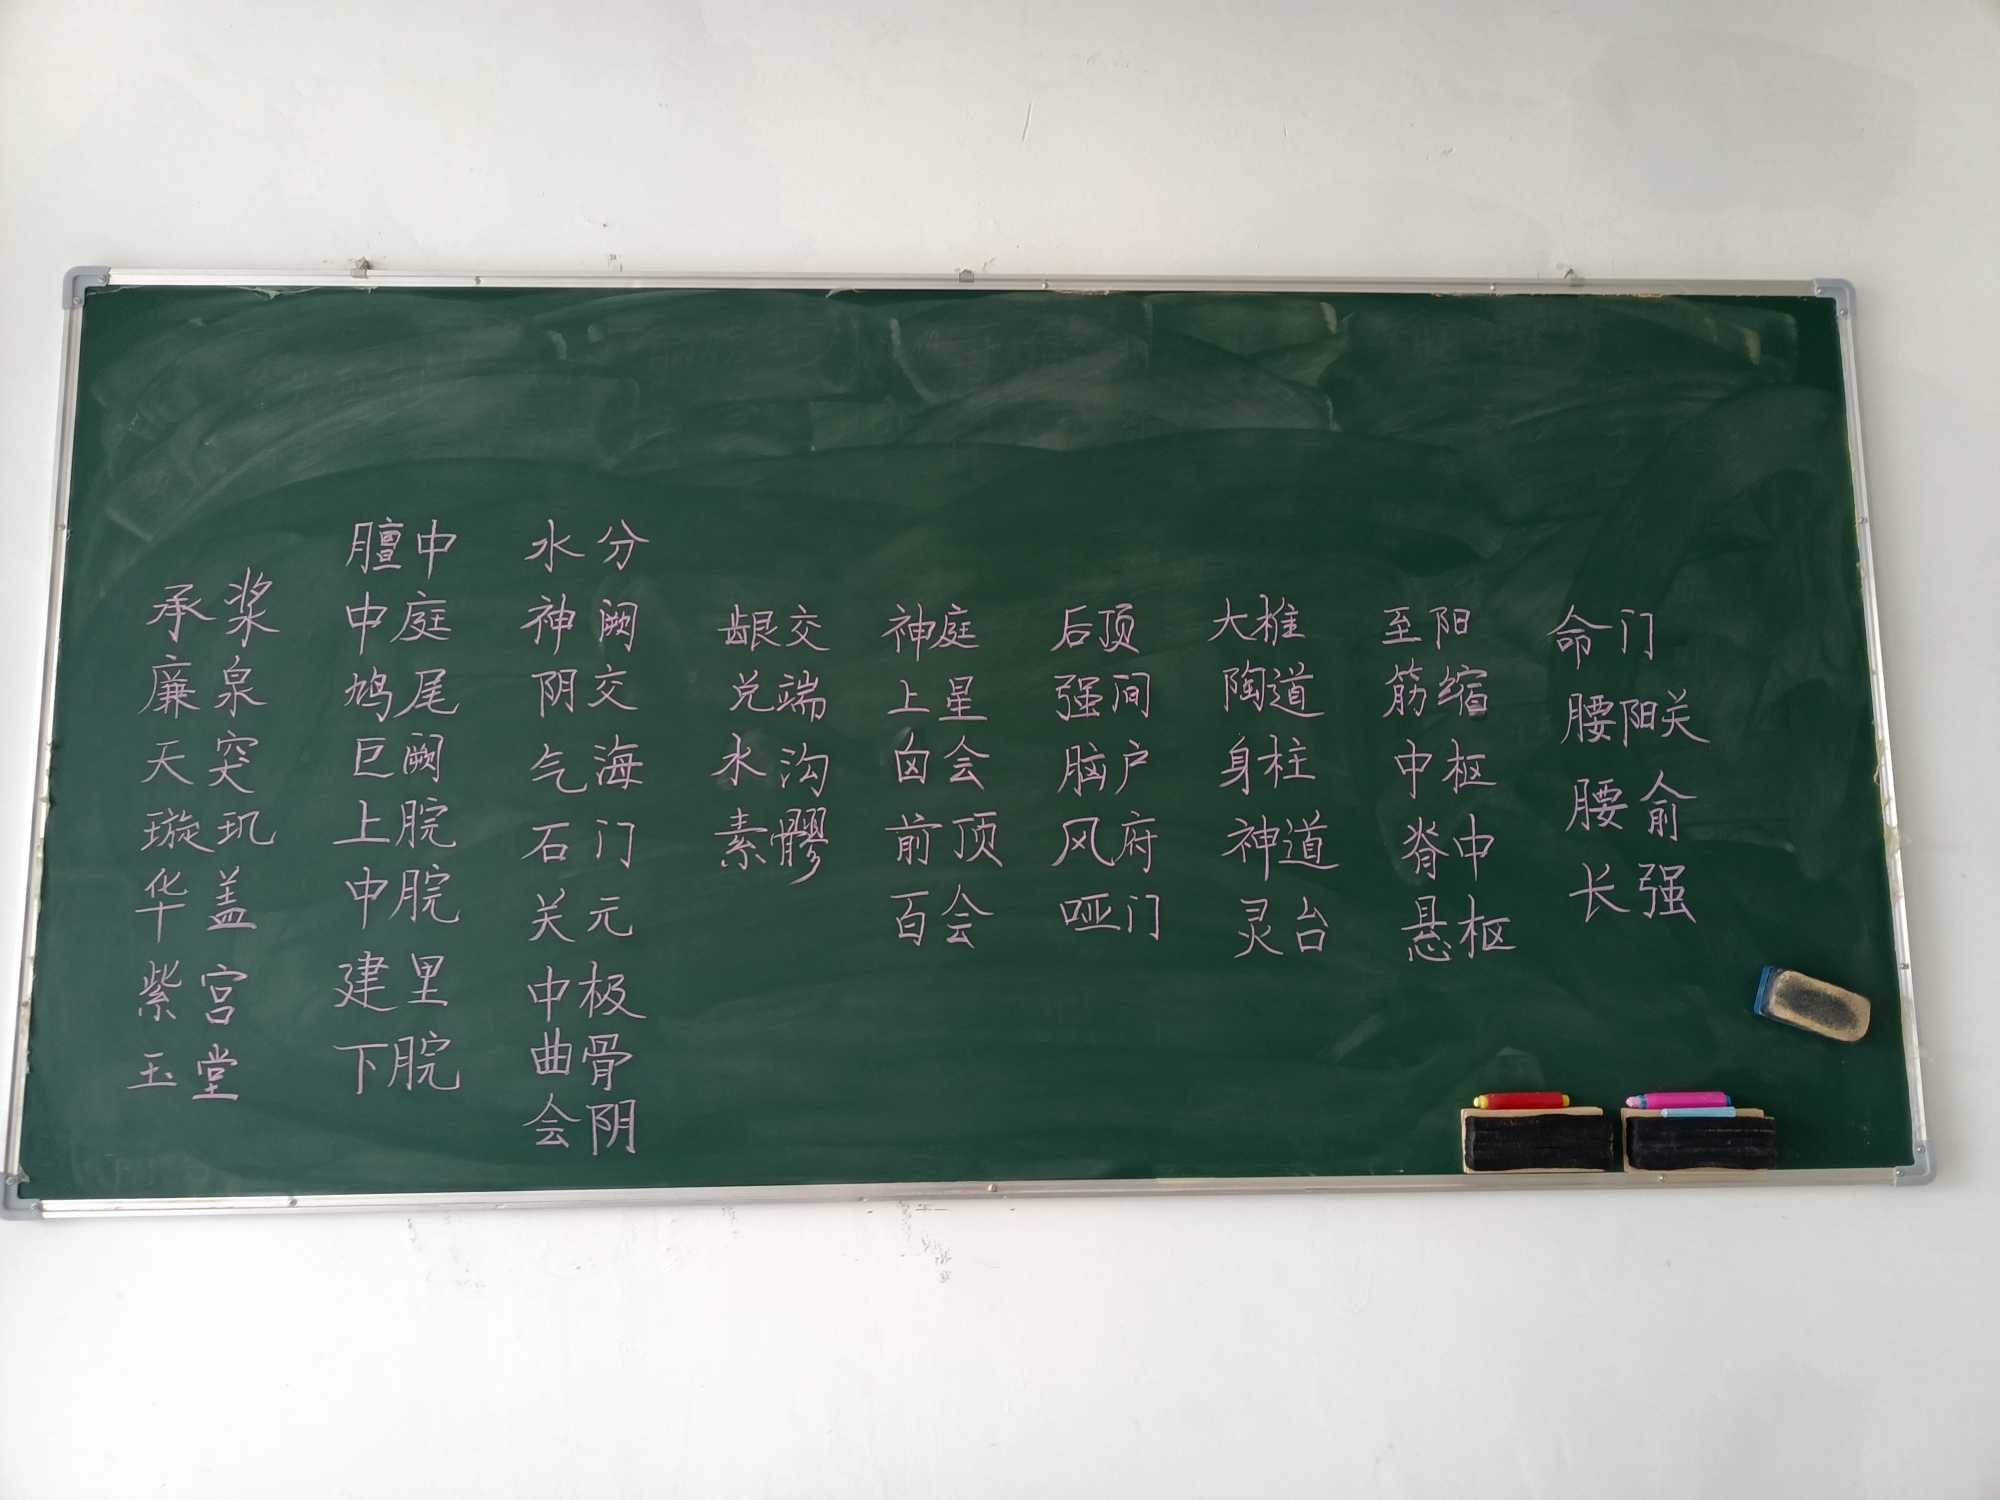 承浆
廉泉
天突
璇玑
华盖
紫宫
玉堂
膻中
中庭
鸠尾
巨阙
上脘
中脘
建里
下脘
水分
神阙
阴交
气海
石门
关元
中极
曲骨
会阴
龈交
兑端
水沟
素髎
神庭
上星
囟会
前顶
百会
后顶
强间
脑户
风府
哑门
大椎
陶道
身柱
神道
灵台
至阳
筋缩
中枢
脊中
悬枢
命门
腰阳关
腰俞
长强